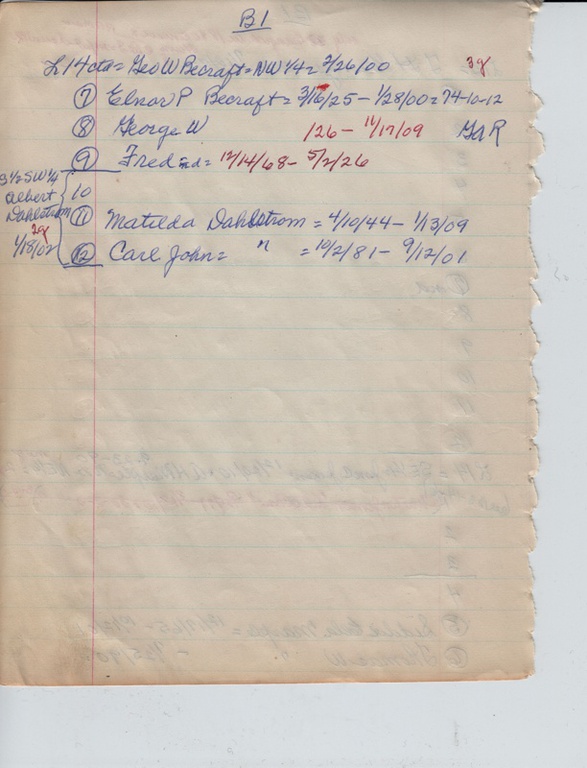 B1
L14 cta = Geo W Becraft = NW 1/4 = 2/26/00 3g
7 Elnor P Becraft = 3/16/25 - 1/28/00 = 74-10-12
8 George W /26 - 11/17/09 GAR
9 Fred = 12/14/68 - 5/2/26
S 1/2 SW 1/4
Albert
Dahlstrom
2g
1/18/02
10
11 Matilda Dahlstrom = 4/10/44 - 1/13/09
12 Carl John = " = 10/2/81 - 9/12/01